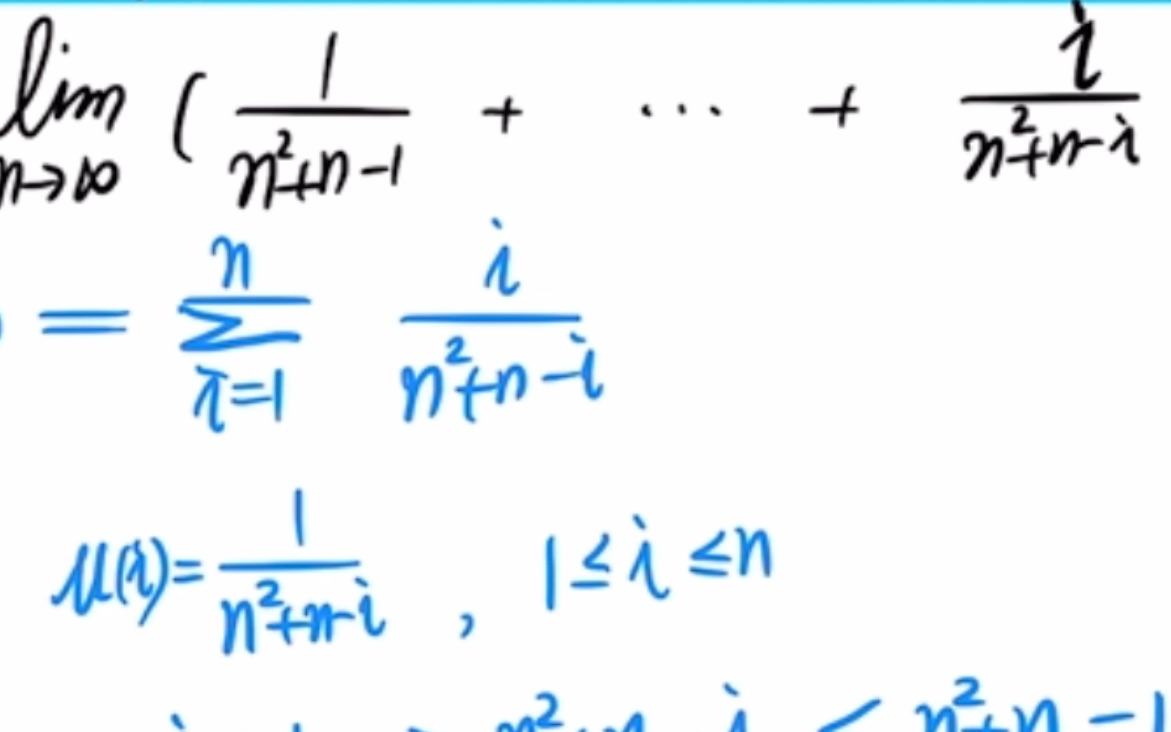 lim n→∞ ( 1/(n²+n-1) + ... + i/(n²+n-i)
= Σ_{i=1}^{n} i/(n²+n-i)
u(i) = 1/(n²+n-i) , 1 ≤ i ≤ n
n²+n-1